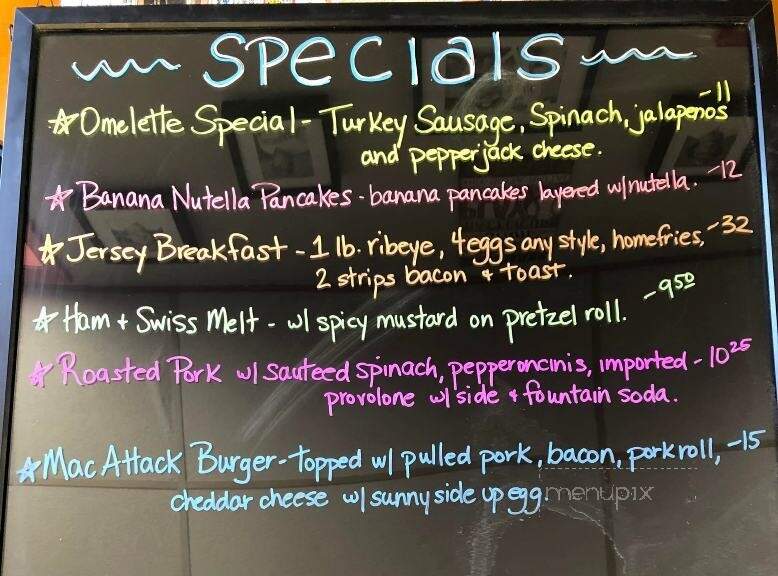 SPECIALS
☆Omelette Special - Turkey Sausage, Spinach, jalapenos -11
and pepperjack cheese.
☆Banana Nutella Pancakes - banana pancakes layered w/nutella. -12
☆Jersey Breakfast - 1 lb. ribeye, 4eggs any style, homefries, -32
2 strips bacon + toast.
☆Ham + Swiss Melt - w/ spicy mustard on pretzel roll. -950
☆Roasted Pork w/ sauteed spinach, pepperoncinis, imported - 1025
provolone w/ side + fountain soda.
☆Mac Attack Burger - topped w/ pulled pork, bacon, porkroll, -15
cheddar cheese w/ sunny side up egg
menupix